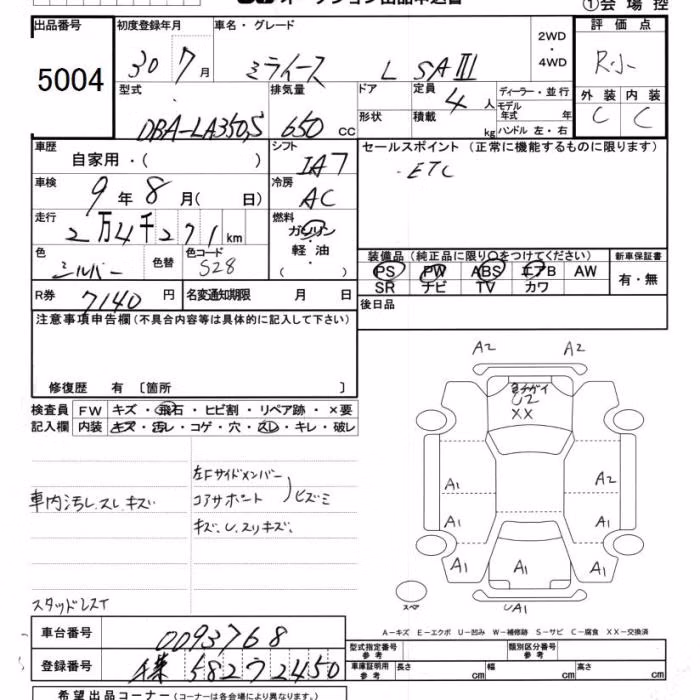 ①会場控
出品番号 初度登録年月 車名・グレード 2WD ・ 4WD 評価点
5004 30 7月 ミライース L SAⅢ R小
型式 排気量 ドア 定員 4人 ディーラー・並行 外装 内装
DBA-LA350S 650 cc 形状 積載 kg モデル年式 年 C C
ハンドル 左・右
車歴 シフト セールスポイント (正常に機能するものに限ります)
自家用・( ) IA7 ・ETC
車検 冷房
9年8月( 日) AC
走行 燃料
2万4千271km ガソリン
・
色 色替 色コード 軽油
シルバー S28 ・( )
装備品 (純正品に限り○をつけてください) 新車保証書
PS PW ABS エアB AW 有・無
SR ナビ TV カワ
R券 7140円 名変通知期限 月 日
後日品
注意事項申告欄 (不具合内容等は具体的に記入して下さい)
修復歴 有 〔箇所 〕
検査員 FW キズ・飛石・ヒビ割・リペア跡・×要
記入欄 内装 キズ・汚レ・コゲ・穴・スレ・キレ・破レ
A2 A2
U2
XX
A1 A2
A1 A1
A1 A1 A1
UA1
スペア
左Fサイドメンバー
コアサポート ヒズミ
車内汚レ.スレ.キズ
キズ、U、スリキズ、
スタッドレスイ
A-キズ E-エクボ U-凹み W-補修跡 S-サビ C-腐食 XX-交換済
車台番号 0093768
型式指定番号 参考 類別区分番号 参考
登録番号 582 2450
車庫証明用 参考 長さ cm 幅 cm 高さ cm
希望出品コーナー (コーナーは各会場により異なります。)